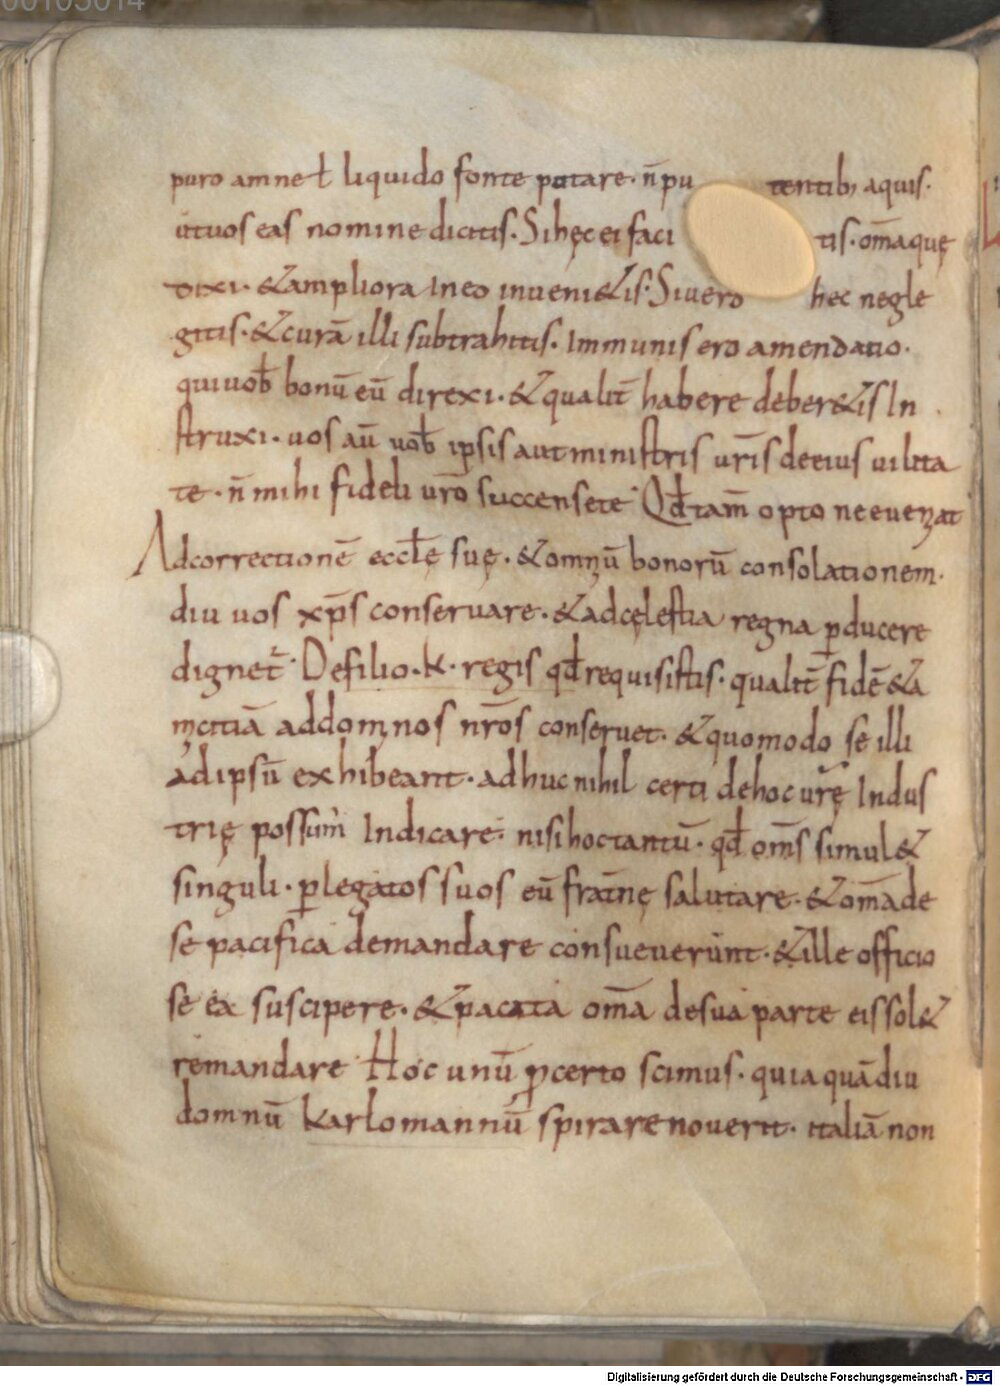 00105014
puro amne ł liquido fonte potare· n̄ pu tentib; aquis·
ut uos eas nomine dicitis· Si hęc ei faci tis· om̄a quę
dixi· & ampliora In eo inueni&is· Si uero hec negle
gitis· & curā illi subtrahitis· Immunis ero amendatio·
qui uob̄ bonū eū direxi· & qualit̄ habere deber&is In
struxi· uos aū uob̄ ipsis aut ministris ur̄is deeius uilita
te· n̄ mihi fideli ur̄o succensete· Qđ tam̄ opto ne eueniat
Ad correctionē eccl̄ę suę· & omniū bonorū consolationem·
diu uos xp̄s conseruare· & ad cęlestia regna ꝑducere
dignet̄· De filio· k· regis qđ requisistis· qualit̄ fidē & a
micitiā ad domnos nr̄os conseruet· & quomodo se illi
ad ipsū exhibeant· adhuc nihil certi de hoc ur̄ę Indus
trię possum̄ Indicare· nisi hoc tantū· qđ om̄s simul &
singuli· ꝑ legatos suos eū frat̄nę salutare· & om̄a de
se pacifica demandare consueuerunt· & ille officio
se ea suscipere· & pacata om̄a de sua parte eis sol&
remandare Hoc unū ꝓ certo scimus· quia quādiu
domnū karlomannū spirare nouerit· italiā non
Digitalisierung gefördert durch die Deutsche Forschungsgemeinschaft - DFG